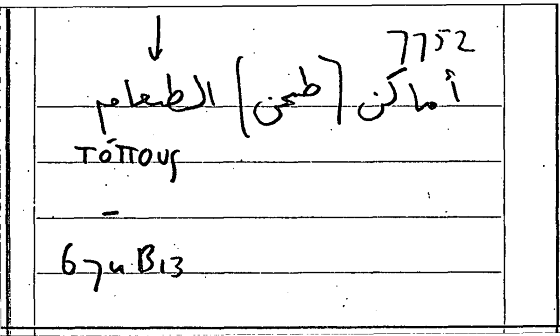 7752
أماكن (طحن) الطعام
τόπους
–
674 B13